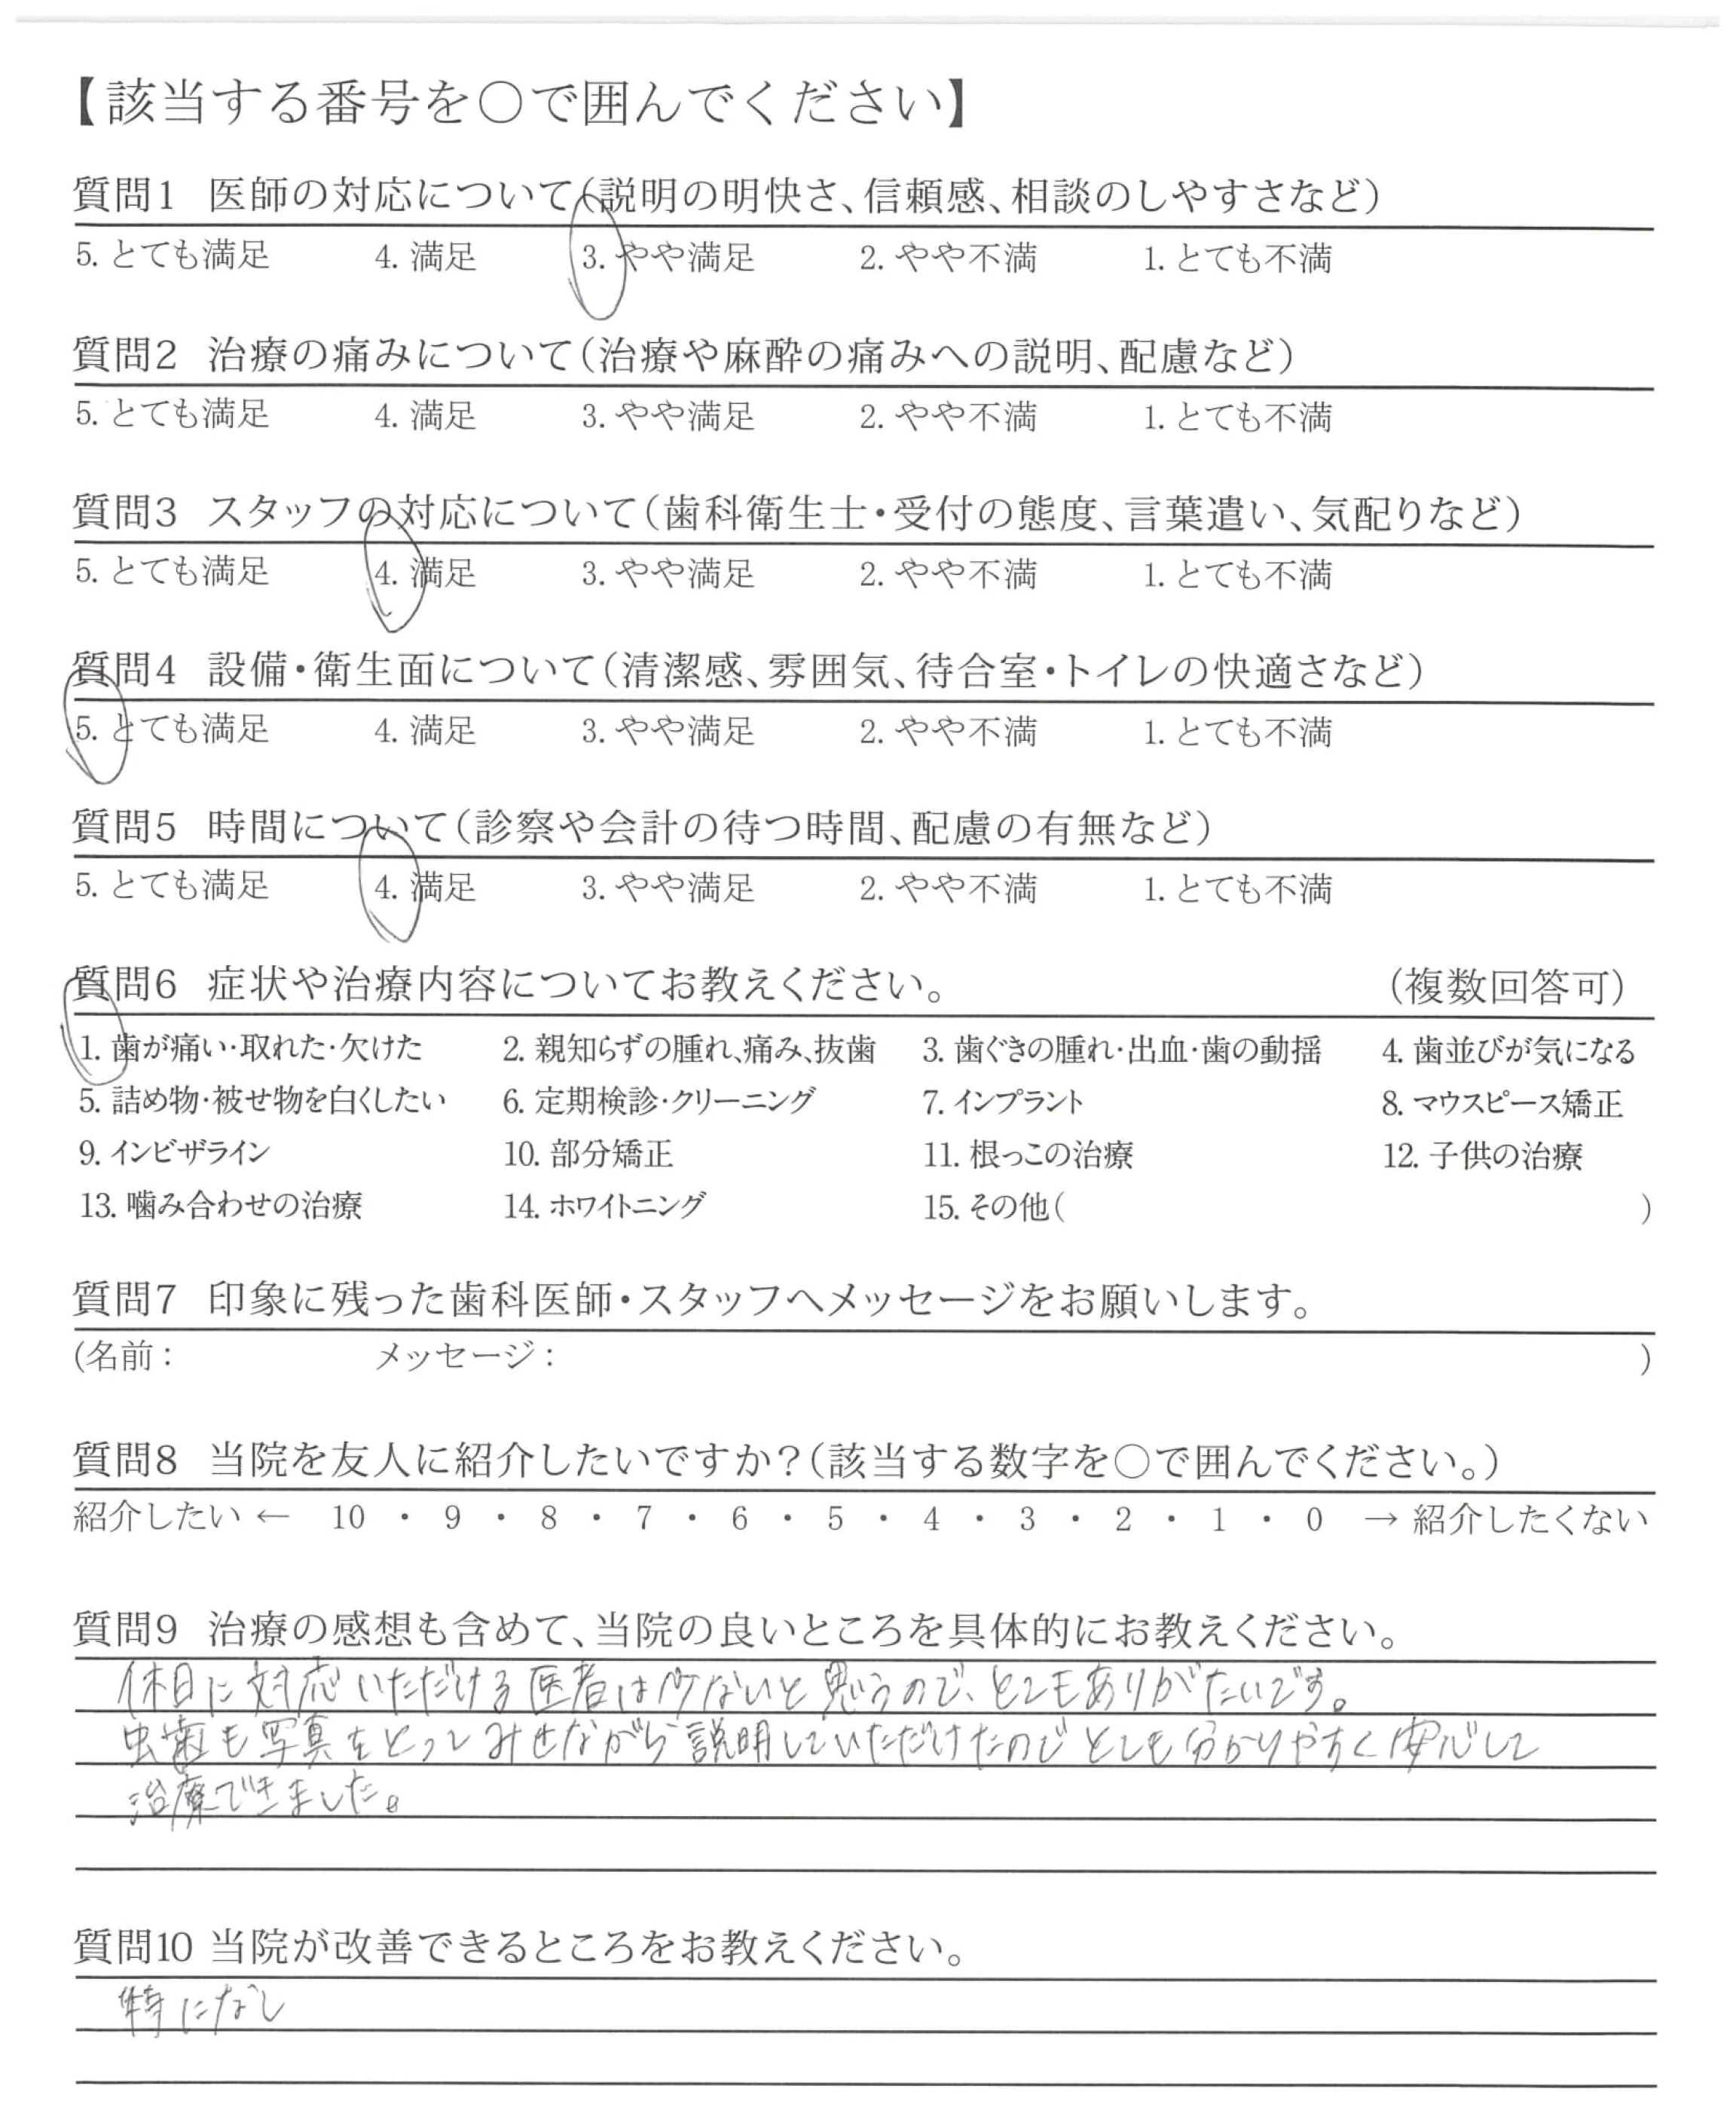 【該当する番号を○で囲んでください】
質問1 医師の対応について(説明の明快さ、信頼感、相談のしやすさなど)
5. とても満足 4. 満足 3. やや満足 2. やや不満 1. とても不満
質問2 治療の痛みについて(治療や麻酔の痛みへの説明、配慮など)
5. とても満足 4. 満足 3. やや満足 2. やや不満 1. とても不満
質問3 スタッフの対応について(歯科衛生士・受付の態度、言葉遣い、気配りなど)
5. とても満足 4. 満足 3. やや満足 2. やや不満 1. とても不満
質問4 設備・衛生面について(清潔感、雰囲気、待合室・トイレの快適さなど)
5. とても満足 4. 満足 3. やや満足 2. やや不満 1. とても不満
質問5 時間について(診察や会計の待つ時間、配慮の有無など)
5. とても満足 4. 満足 3. やや満足 2. やや不満 1. とても不満
質問6 症状や治療内容についてお教えください。 (複数回答可)
1. 歯が痛い・取れた・欠けた 2. 親知らずの腫れ、痛み、抜歯 3. 歯ぐきの腫れ・出血・歯の動揺 4. 歯並びが気になる
5. 詰め物・被せ物を白くしたい 6. 定期検診・クリーニング 7. インプラント 8. マウスピース矯正
9. インビザライン 10. 部分矯正 11. 根っこの治療 12. 子供の治療
13. 噛み合わせの治療 14. ホワイトニング 15. その他( )
質問7 印象に残った歯科医師・スタッフへメッセージをお願いします。
(名前: メッセージ: )
質問8 当院を友人に紹介したいですか?(該当する数字を○で囲んでください。)
紹介したい ← 10 ・ 9 ・ 8 ・ 7 ・ 6 ・ 5 ・ 4 ・ 3 ・ 2 ・ 1 ・ 0 → 紹介したくない
質問9 治療の感想も含めて、当院の良いところを具体的にお教えください。
休日に対応いただける医者は少ないと思うので、とてもありがたいです。
虫歯も写真をとってみせながら説明していただけたのでとても分かりやすく安心して
治療できました。
質問10 当院が改善できるところをお教えください。
特になし